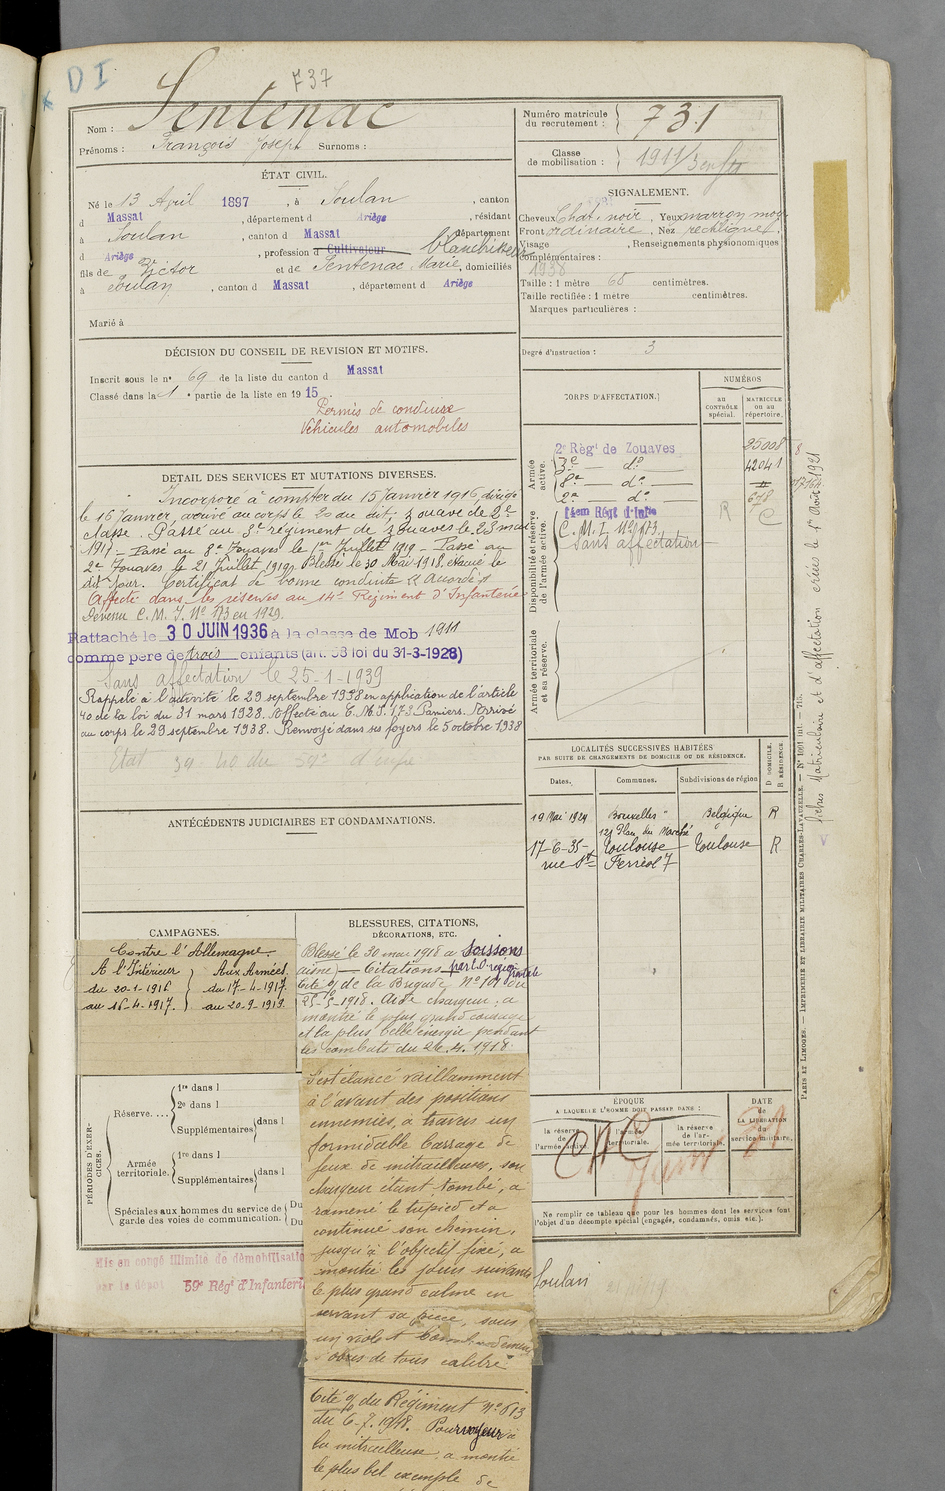 D I
737
Nom : Sentenac
Prénoms : François Joseph Surnoms :
ÉTAT CIVIL.
Né le 13 April 1897, à Soulan, canton
d Massat, département d Ariège, résidant
à Soulan, canton d Massat département
d Ariège, profession d Cultivateur blanchisseur
fils de Victor et de Sentenac Marie, domiciliés
à Soulan, canton d Massat, département d Ariège
Marié à
DÉCISION DU CONSEIL DE REVISION ET MOTIFS.
Inscrit sous le n° 69 de la liste du canton d Massat
Classé dans la 1e partie de la liste en 1915
Permis de conduire
Véhicules automobiles
DETAIL DES SERVICES ET MUTATIONS DIVERSES.
Incorporé à compter du 15 Janvier 1916, dirigé
le 16 Janvier, arrivé au corps le 20 du dit; zouave de 2e
classe. Passé au 3e régiment de Zouaves le 23 mars
1917 - Passé au 8e Zouaves le 1er Juillet 1919 - Passé au
2e Zouaves le 21 Juillet 1919. Blessé le 30 Mai 1918. évacué le
dit jour. Certificat de bonne conduite accordé
Affecté dans les réserves au 14e Régiment d'Infanterie
Devenu C. M. I. N° 173 en 1929.
Rattaché le 30 JUIN 1936 à la classe de Mob 1911
comme père de trois enfants (art. 58 loi du 31-3-1928)
Sans affectation le 25-1-1939
Rappelé à l'activité le 29 septembre 1938 en application de l'article
40 de la loi du 31 mars 1928. Affecté au C. M. I. 173 Pamiers. Arrivé
au corps le 29 septembre 1938. Renvoyé dans ses foyers le 5 octobre 1938
Etat 39-40 du 59e d'infie
ANTÉCÉDENTS JUDICIAIRES ET CONDAMNATIONS.
CAMPAGNES.
Contre l'Allemagne.
A l'Intérieur } Aux Armées
du 20-1-1916 } du 17-4-1917
au 16-4-1917. } au 20-9-1919.
BLESSURES, CITATIONS,
DÉCORATIONS, ETC.
Blessé le 30 mai 1918 à Soissons
(aisne) — Citations
Cité de la Brigade N° 101 du
25-5-1918. Aide chargeur; a
montré le plus grand courage
et la plus belle énergie pendant
les combats du 26.4.1918
S'est élancé vaillamment
à l'avant des positions
ennemies, à travers un
formidable barrage de
feux de mitrailleuses, son
chargeur étant tombé, a
ramené le trépied et a
continué son chemin,
jusqu'à l'objectif fixé, a
montré les jours suivants
le plus grand calme en
servant sa pièce, sous
un violent bombardement
d'obus de tous calibre
Cité % du Régiment N° 613
du 6-7-1918. Pourvoyeur à
la mitrailleuse, a montré
le plus bel exemple de
PÉRIODES D'EXERCICES.
Réserve....
1re dans l
2e dans l
Supplémentaires dans l
Armée territoriale.
1re dans l
Supplémentaires dans l
Spéciales aux hommes du service de garde des voies de communication.
Du
Du
Mis en congé illimité de démobilisatio
par le dépôt 59e Régt d'Infanteri
Numéro matricule du recrutement : 731
Classe de mobilisation : 1911/3 enfts
SIGNALEMENT.
Cheveux Chat. noir, Yeux marron moy
Front ordinaire, Nez rectiligne
Visage , Renseignements physionomiques
complémentaires :
1938
Taille : 1 mètre 60 centimètres.
Taille rectifiée : 1 mètre centimètres.
Marques particulières :
Degré d'instruction : 3
CORPS D'AFFECTATION.
NUMÉROS
AU CONTRÔLE spécial.
MATRICULE ou au répertoire.
Armée active.
2e Régt de Zouaves 25008
3e — do — 42041
8e — do — "
2e do — 678
Disponibilité et réserve de l'armée active.
14em Régt d'Infie R C
C. M. I. N° 173
Sans affectation
Armée territoriale et sa réserve.
LOCALITÉS SUCCESSIVES HABITÉES
PAR SUITE DE CHANGEMENTS DE DOMICILE OU DE RÉSIDENCE.
Dates. Communes. Subdivisions de région D DOMICILE. R RÉSIDENCE.
19 Mai 1924 Bruxelles Belgique R
121 Plan du Marché
17-6-35 Toulouse Toulouse R
rue St Ferréol 7
ÉPOQUE
A LAQUELLE L'HOMME DOIT PASSER DANS :
la réserve de l'armée active.
l'armée territoriale.
la réserve de l'armée territoriale.
DATE de LA LIBÉRATION du service militaire.
Ne remplir ce tableau que pour les hommes dont les services font
l'objet d'un décompte spécial (engagés, condamnés, omis, etc.).
Soulan
fiches Matriculaire et d'affectation créées le 1er Août 1921
PARIS ET LIMOGES. — IMPRIMERIE ET LIBRAIRIE MILITAIRES CHARLES-LAVAUZELLE. — N° 1001 int. — 715.